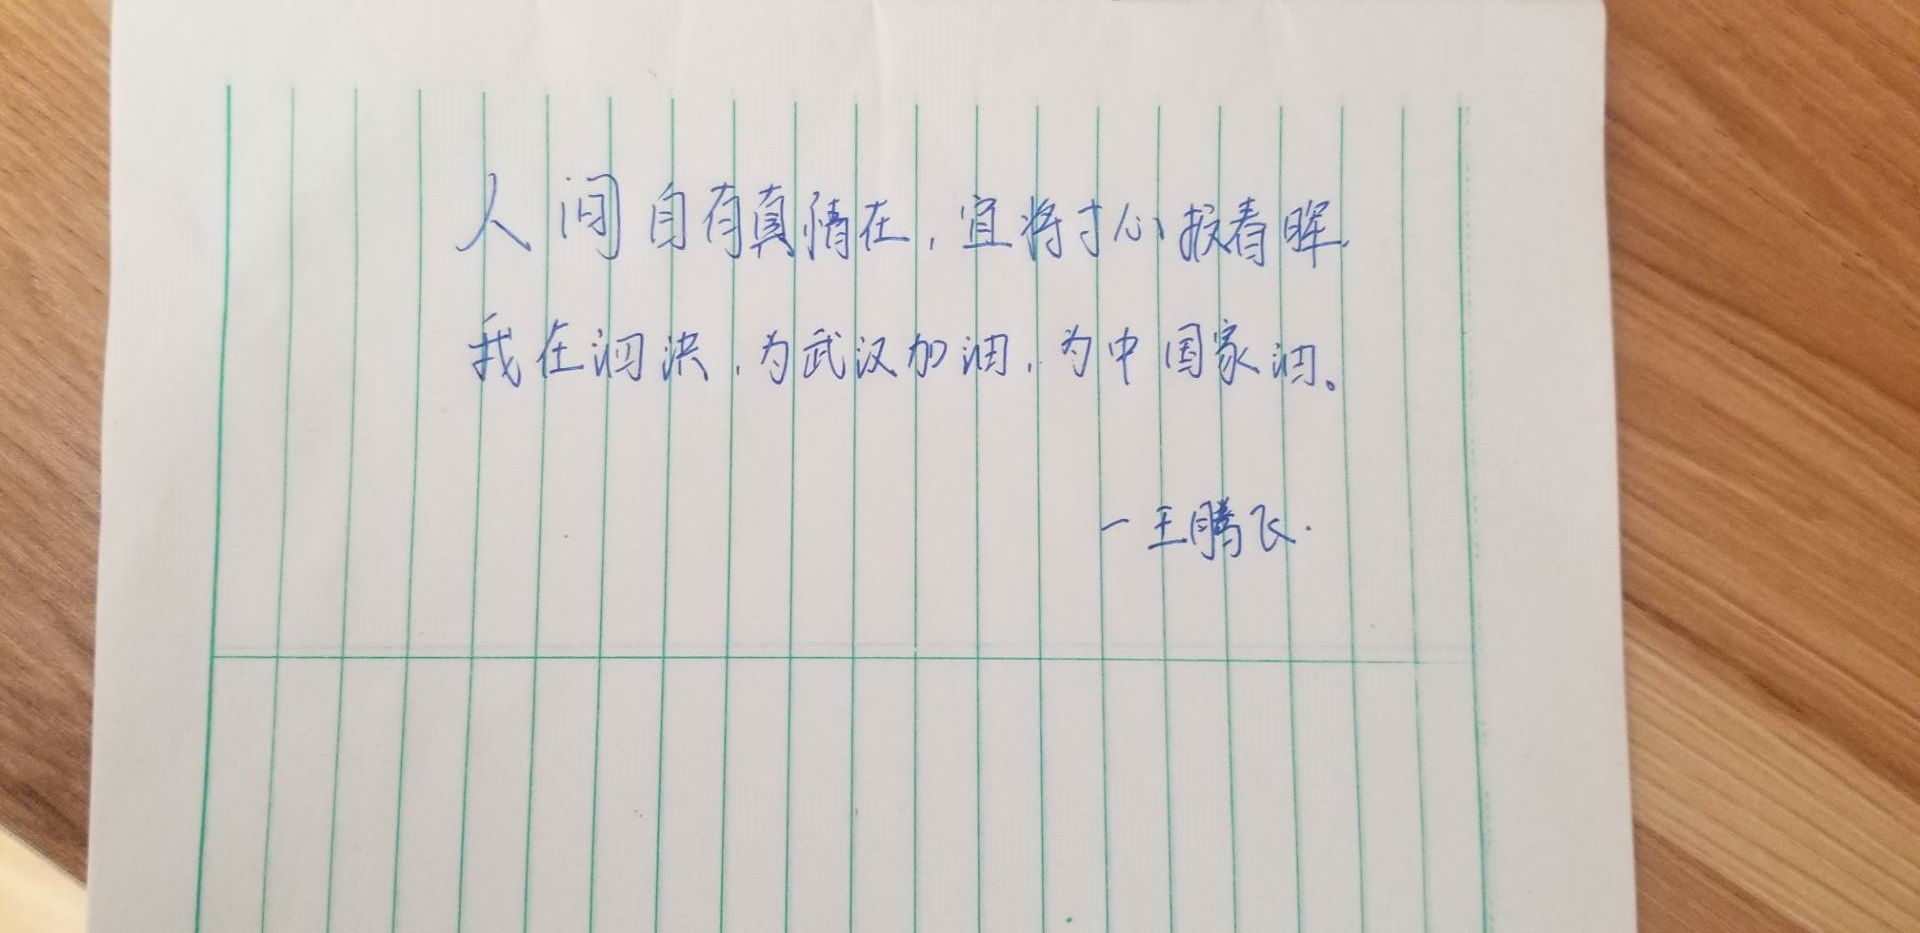 人间自有真情在,宜将寸心报春晖.
我在泗洪,为武汉加油,为中国家油。
—王腾飞.